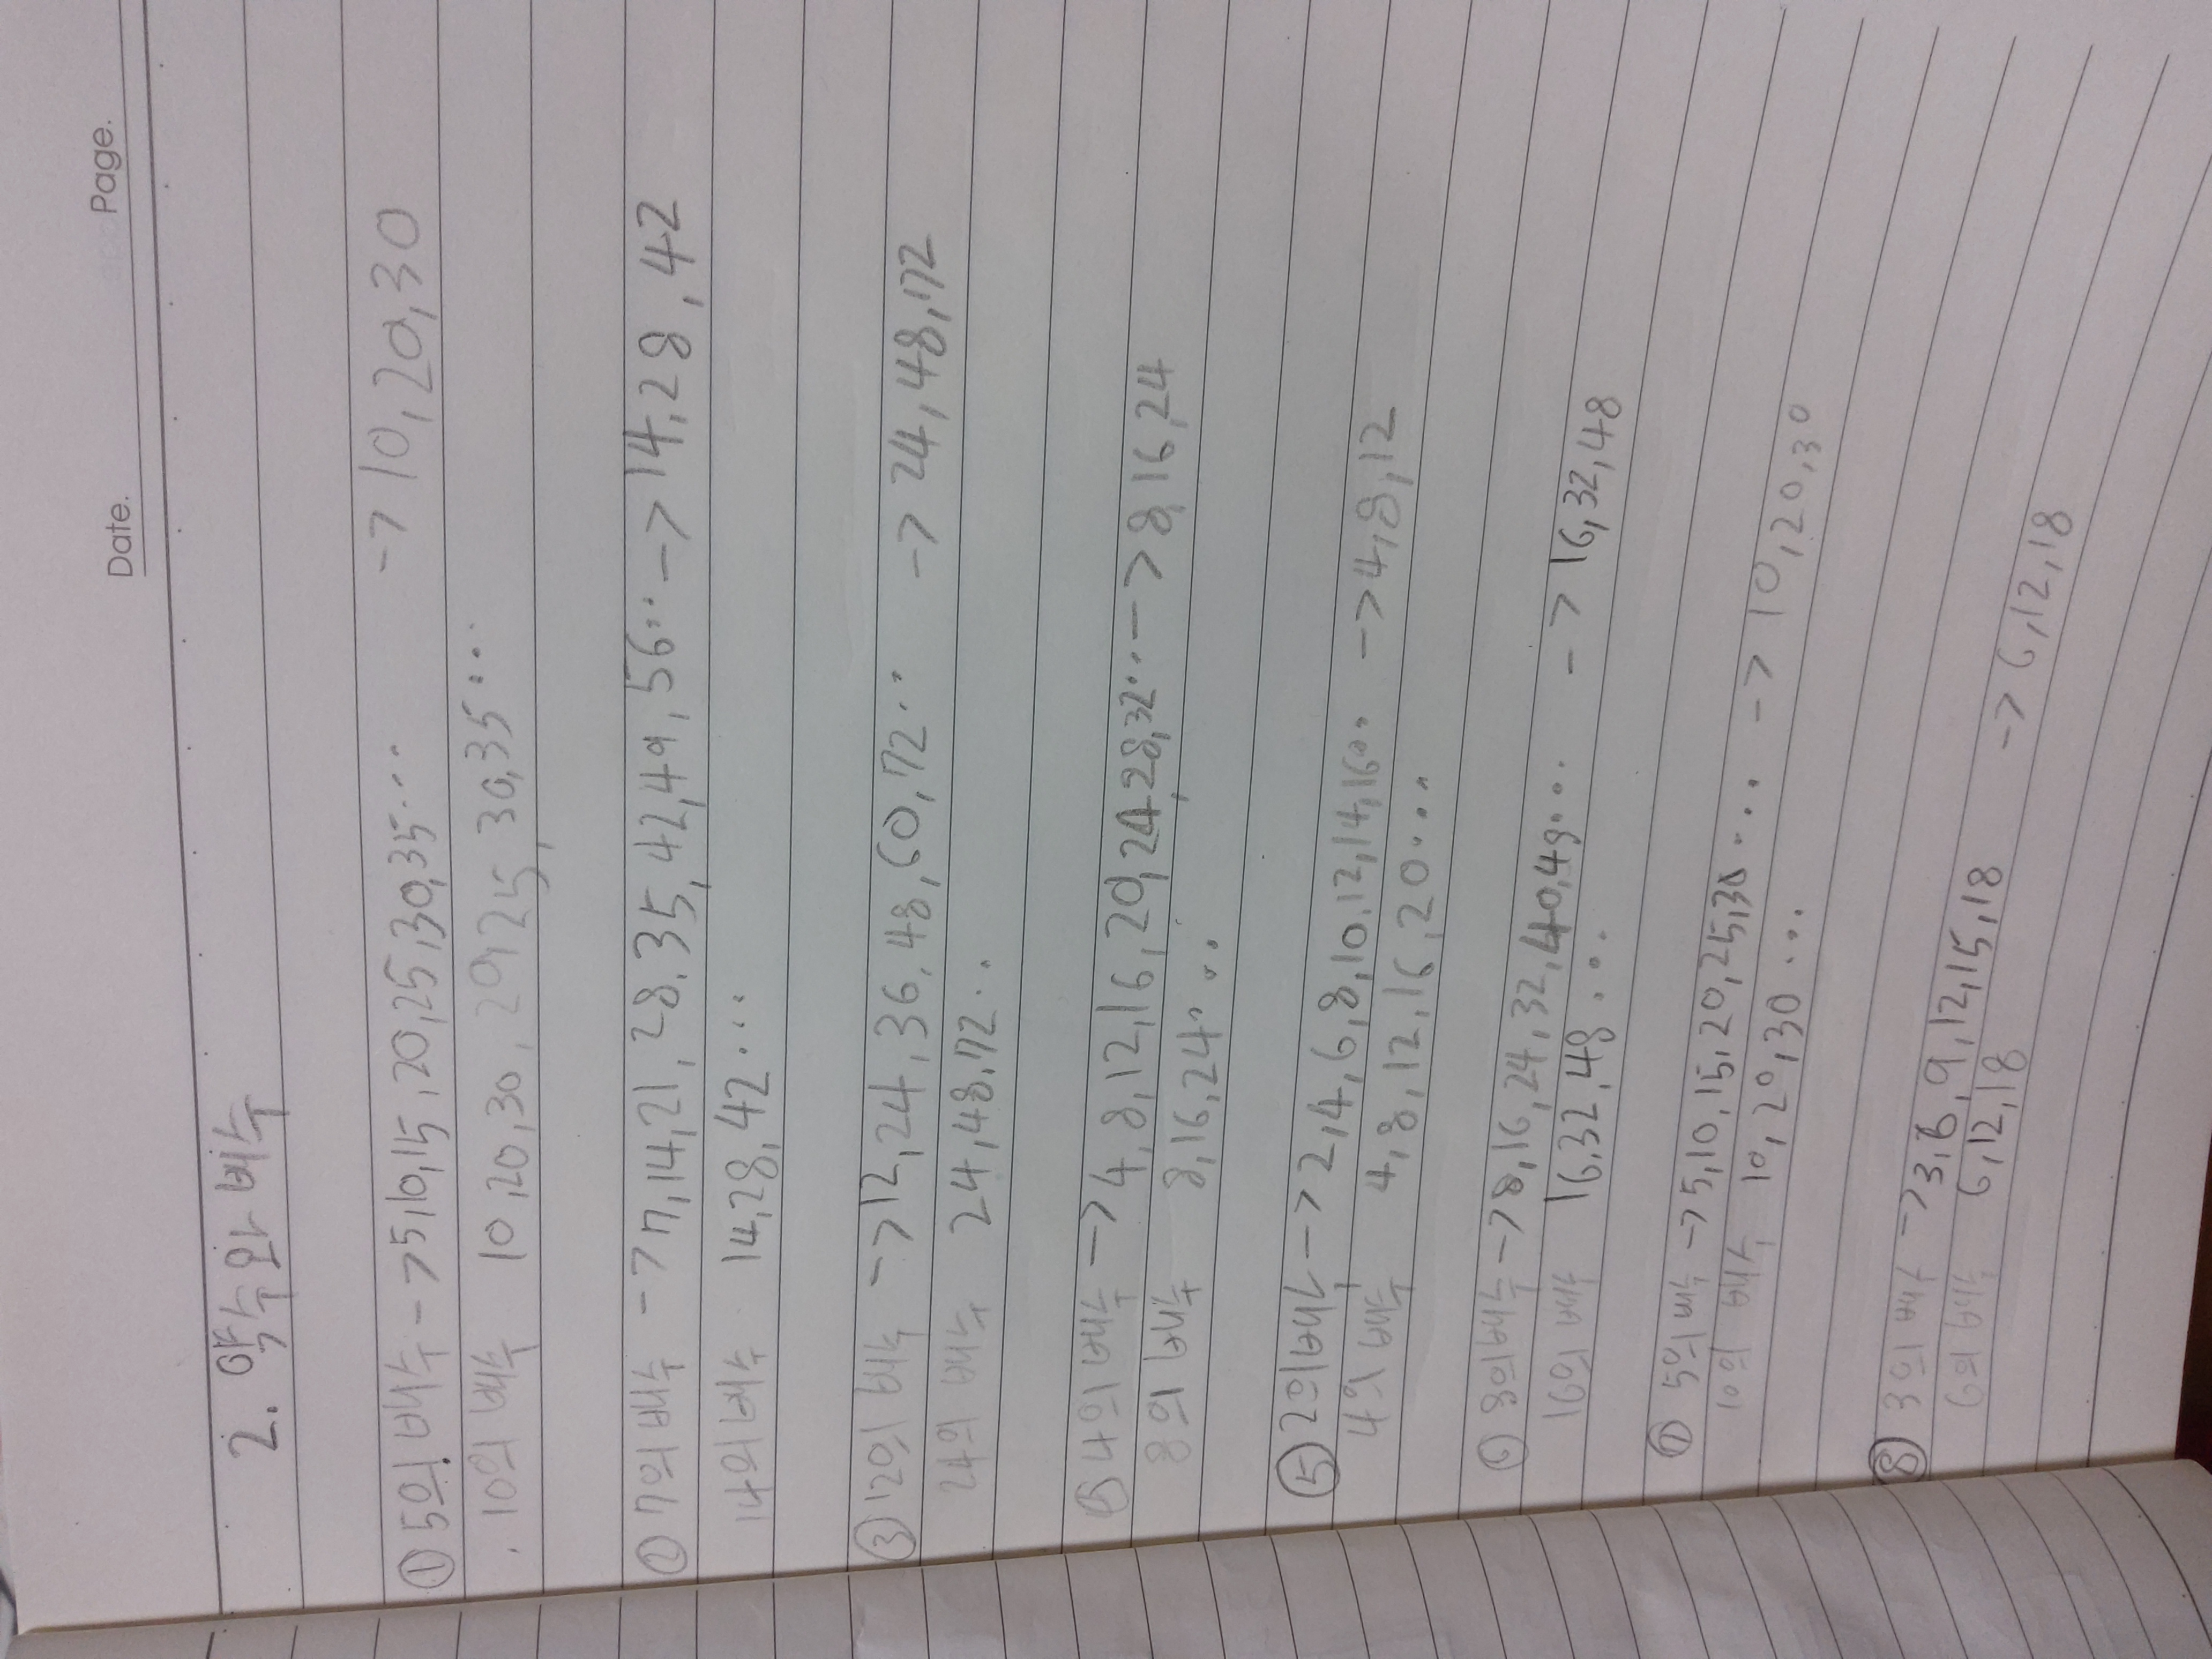 Date. Page.
2. 약수와 배수
① 5의 배수 -> 5,10,15,20,25,30,35··· -> 10,20,30
10의 배수 10,20,30, 20,25, 30,35···
② 7의 배수 -> 7,14,21, 28,35,42,49,56·· -> 14,28,42
14의 배수 14,28,42···
③ 12의 배수 -> 12,24,36,48,60,72·· -> 24,48,72
24의 배수 24,48,72··
4의 배수 -> 4,8,12,16,20,24,28,32··· -> 8,16,24
8의 배수 8,16,24···
⑤ 2의 배수 -> 2,4,6,8,10,12,14,16·· -> 4,8,12
4의 배수 4,8,12,16,20···
⑥ 8의 배수 -> 8,16,24,32,40,48··· -> 16,32,48
16의 배수 16,32,48···
⑦ 5의 배수 -> 5,10,15,20,25,30··· -> 10,20,30
10의 배수 10,20,30···
⑧ 3의 배수 -> 3,6,9,12,15,18 -> 6,12,18
6의 배수 6,12,18